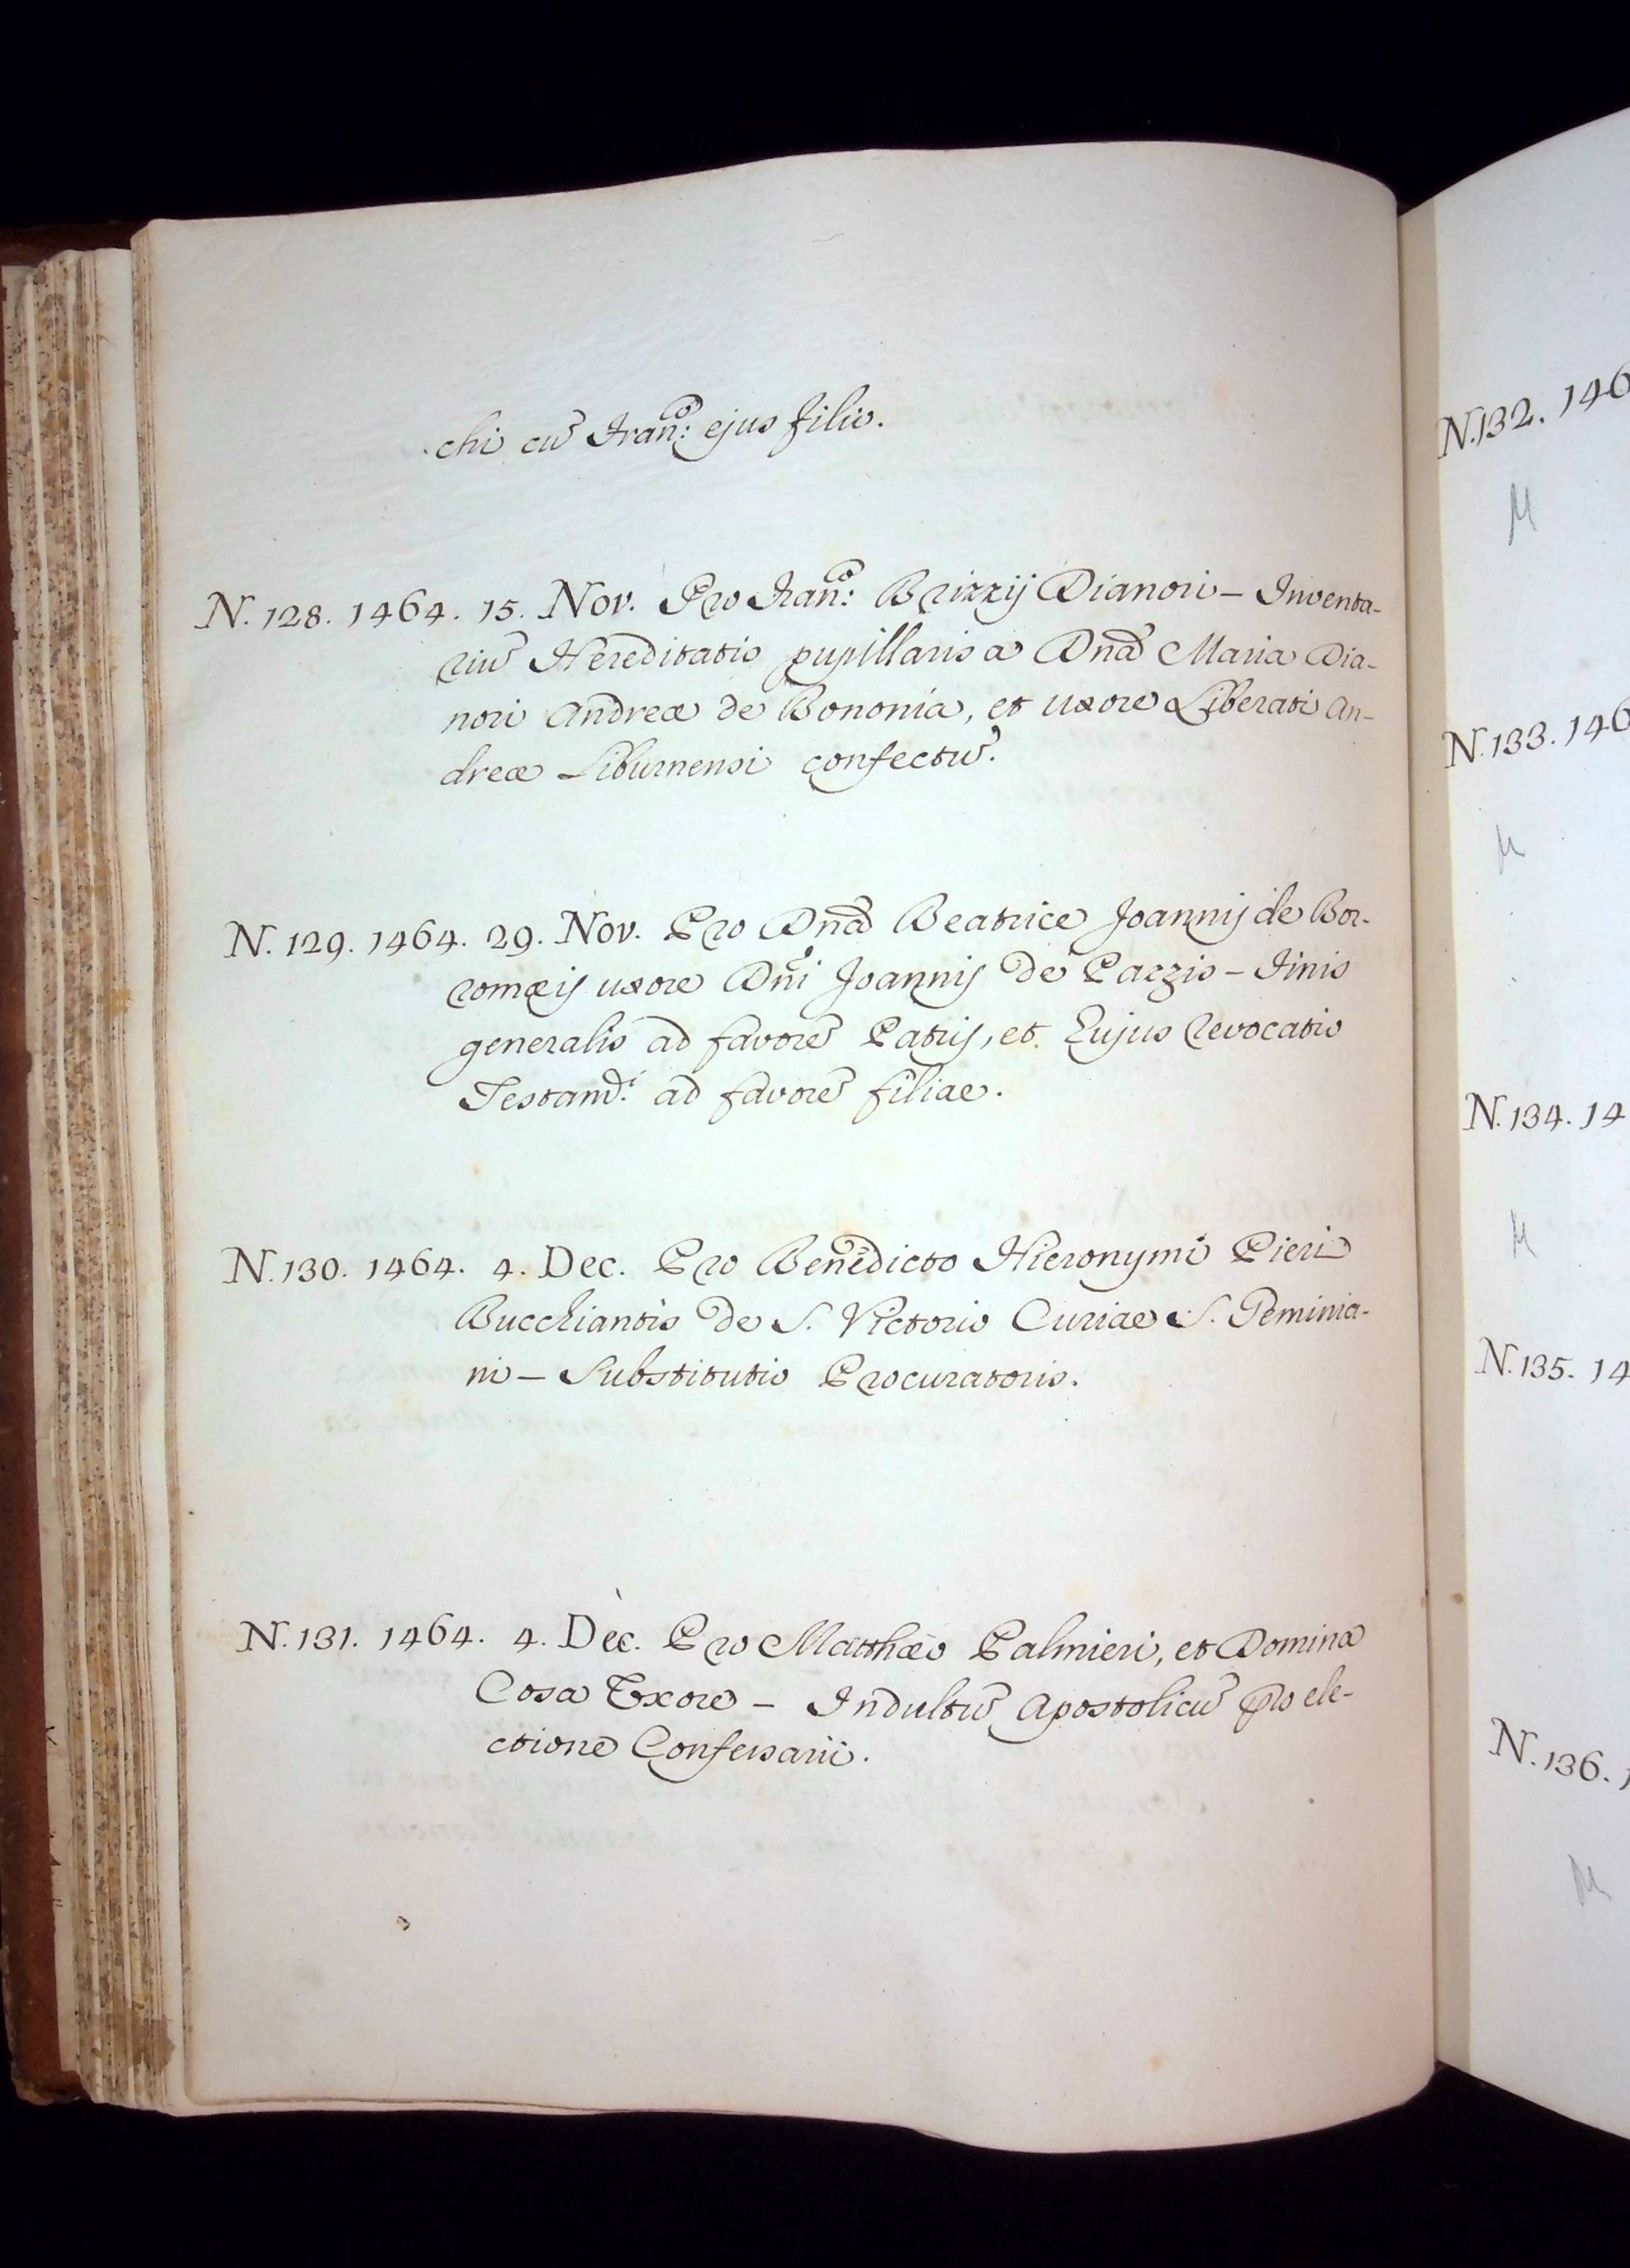 chi cũ Fran:co ejus filio.
N. 128. 1464. 15. Nov. Pro Fran:co Brizzij Dianori – Inventa-
riũ Hereditatis pupillaris a Dnã Maria Dia-
nori Andreæ de Bononia, et uxore Liberati An-
dreæ Liburnensi confectũ.
N. 129. 1464. 29. Nov. Pro Dnã Beatrice Joannis de Bor-
romæis uxore Dñi Joannis de Pazzis – Finis
generalis ad favorẽ Patris, et Ejus revocatio
Testamti. ad favorẽ filiae.
N. 130. 1464. 4. Dec. Pro Benedicto Hieronymi Pieri
Bucchiantis de S. Victorio Curiae S. Geminia-
ni – Substitutio Procuratoris.
N. 131. 1464. 4. Dec. Pro Matthæo Palmieri, et Domina
Cosa Uxore – Indultũ Apostolicũ pro ele-
ctione Confessarii.
N. 132. 146
M
N. 133. 146
M
N. 134. 14
M
N. 135. 14
N. 136. 1
M